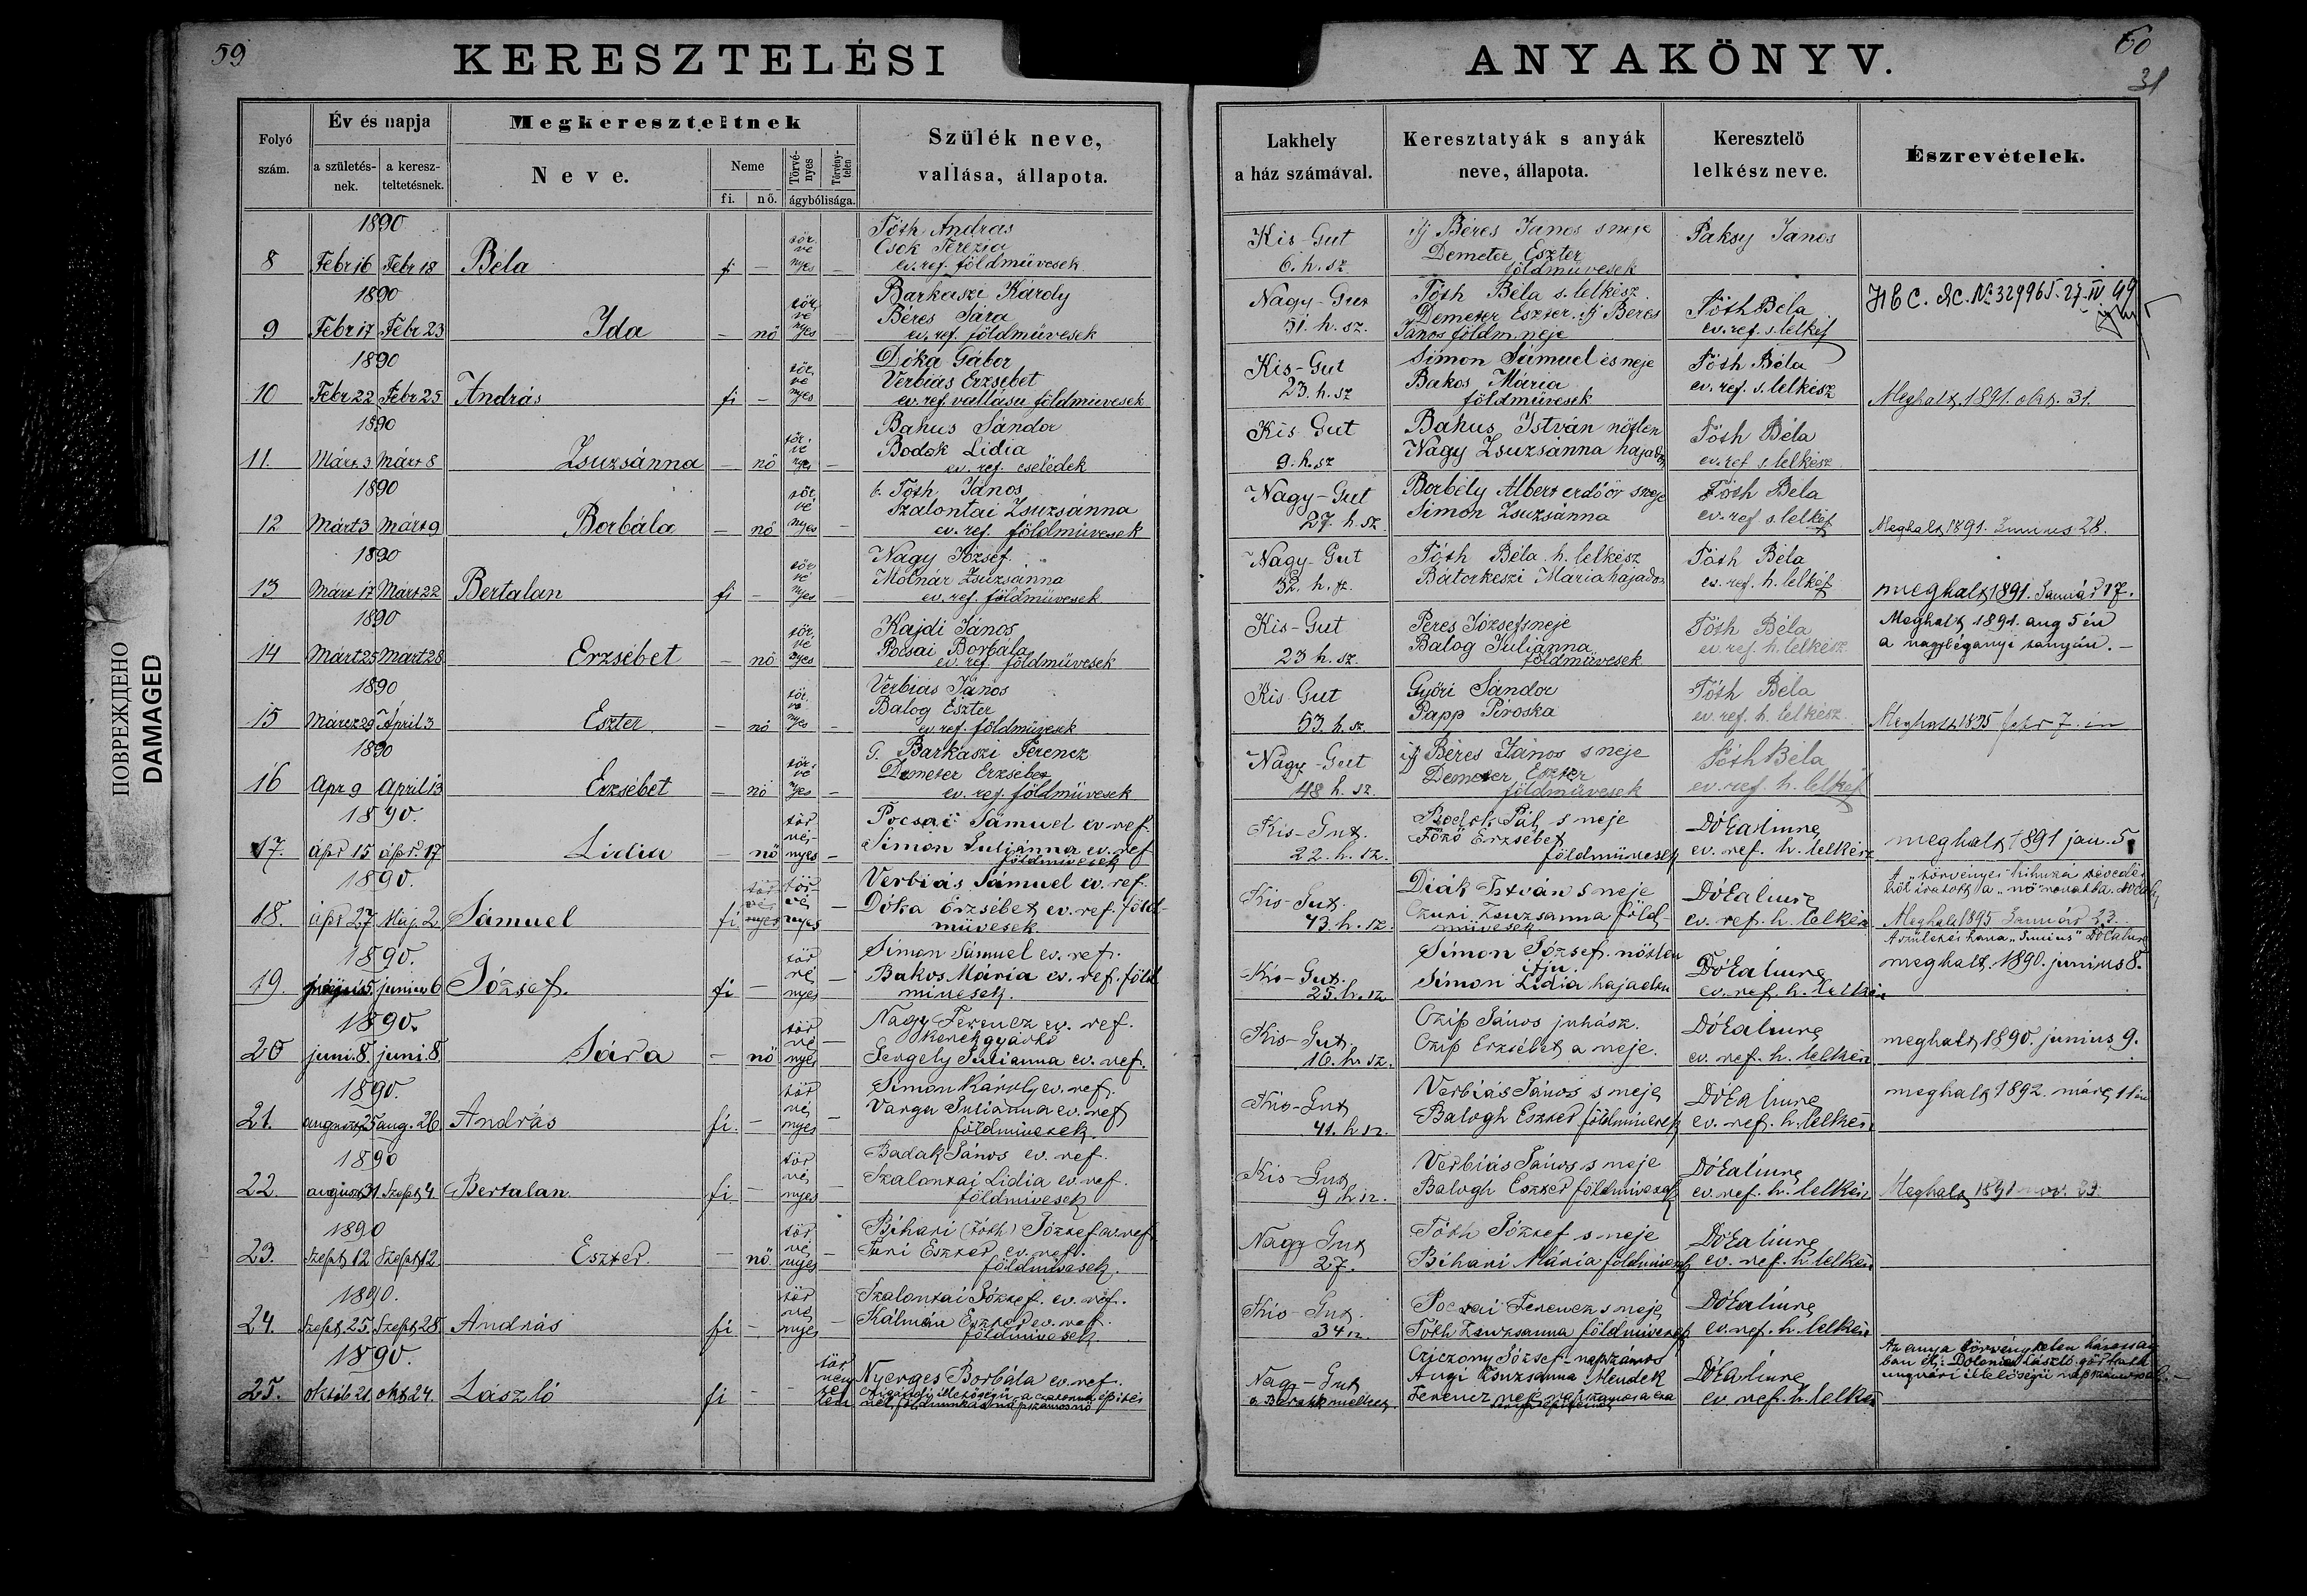 59
KERESZTELÉSI
ANYAKÖNYV.
60
31
ПОВРЕЖДЕНО
DAMAGED
Folyó szám.
Év és napja
a születés-nek.
a keresz-teltetésnek.
Megkereszteltnek
Neve.
Neme
fi.
nő.
Törvé-nyes
Törvény-telen
ágybólisága.
Szülék neve,
vallása, állapota.
Lakhely
a ház számával.
Keresztatyák s anyák
neve, állapota.
Keresztelö
lelkész neve.
Észrevételek.
1890
8 Febr 16 Febr 18 Béla fi — tör vé nyes —
Tóth András
Csok Terézia
ev. ref. földmüvesek
Kis-Gut
6. h. sz
ifj Béres János s neje
Demeter Eszter
földmüvesek
Paksy János
1890
9 Febr 17 Febr 23 Ida — nö tör vé nyes —
Barkaszi Károly
Béres Sára
ev. ref. földmüvesek
Nagy-Gut
51. h. sz.
Tóth Béla s. lelkész
Demeter Eszter ifj Béres
János földm. neje
Tóth Béla
ev. ref. s. lelkész
№ 329965. 27. IV. 49
1890
10 Febr 22 Febr 25 András fi — tör vé nyes
Dóka Gábor
Verbiás Erzsébet
ev. ref vallásu földmüvesek
Kis-Gut
23. h. sz
Simon Sámuel és neje
Bakos Mária
földmüvesek
Tóth Béla
ev. ref. s. lelkész
Meghalt. 1891. okt. 31.
1890
11. Márt. 3 Márt 8 Zsuzsánna — nö tör vé nyes —
Bakus Sándor
Bodok Lidia
ev. ref. cselédek
Kis Gut
9. h. sz
Bakus István nőtlen
Nagy Zsuzsánna hajadon
Tóth Béla
ev. ref s. lelkész
1890
12 Márt 3 Márt 9 Borbála — nö tör vé nyes —
b. Tóth János
Szalontai Zsuzsánna
ev. ref. földmüvesek
Nagy-Gut
27. h. sz
Borbély Albert erdöör s neje
Simon Zsuzsánna
Tóth Béla
ev. ref s. lelkész
Meghalt 1891. Junius 28.
1890
13 Márt 17 Márt 22 Bertalan fi — tör vé nyes —
Nagy József
Molnár Zsuzsánna
ev. ref. földmüvesek
Nagy-Gut
32. h. sz.
Tóth Béla h. lelkész
Bátorkeszi Mária hajadon
Tóth Béla
ev. ref. h. lelkész
meghalt 1891. Január 17.
1890
14 Márt 25 Márt 28 Erzsébet — nö tör vé nyes
Kajdi János
Pocsai Borbála
ev. ref. földmüvesek
Kis-Gut
23 h. sz.
Peres József neje
Balog Juliánna
földmüvesek
Tóth Béla
ev. ref. h. lelkész
Meghalt 1891. aug 5 én
a nagybégányi tanyán. —
1890
15 Márcz 29 April 3 Eszter — nö tör vé nyes —
Verbiás János
Balog Eszter
ev. ref. földmüvesek
Kis-Gut
53. h. sz.
Győri Sándor
Papp Piroska
Tóth Béla
ev. ref. h. lelkész
Meghalt 1895 febr 7. én
1890
16 Apr 9 April 13 Erzsébet — nö tör vé nyes —
G. Barkászi Ferencz
Demeter Erzsébet
ev. ref. földmüvesek
Nagy-Gut
48 h. sz.
ifj Béres János s neje
Demeter Eszter
földmüvesek
Tóth Béla
ev. ref. h. lelkész
1890.
17. ápr 15 ápr. 17 Lidia — nö tör vé- nyes —
Pocsai Sámuel ev ref.
Simon Juliánna ev. ref
földmivesek
Kis-Gut.
22. h. sz.
Bodok Pál s neje
Tőkő Erzsébet
földmüvesek
Dóka Imre
ev. ref. h. lelkész
meghalt 1891 jan. 5.
1890.
18. ápr 27 Máj. 2. Sámuel fi tör vé nyes tör vé nyes —
Verbiás Sámuel ev. ref.
Dóka Erzsébet ev. ref. föld-
müvesek
Kis-Gut.
43. h. sz.
Diák István s neje
Czuri Zsuzsanna föld-
müvesek
Dóka Imre
ev. ref. h. lelkész
A „törvényes" hibuzá tévedés
ből iratott a „nö" rovatba. Dóka
Meghalt 1895 Január 23.
1890.
19. 5. junius 6 József. fi — tör vé nyes —
Simon Sámuel ev. ref.
Bakos Mária ev. ref. föld
mivesek.
Kis-Gut.
25. h. sz.
Simon József. nőtlen
ifju.
Simon Lidia hajadon
Dóka Imre
ev. ref. h. lelkész
A születési hava „Junius" Dóka Imre
meghalt. 1890. junius 8.
1890.
20 juni. 8. juni. 8. Sára — nö tör vé nyes —
Nagy Ferencz ev. ref.
kerékgyártó
Gergely Julianna ev. ref.
Kis-Gut.
16. h. sz.
Czip János juhász.
Czip Erzsébet a neje.
Dóka Imre
ev. ref. h. lelkész
meghalt 1890. junius 9.
1890.
21. august 25 aug. 26. András fi. — tör vé nyes —
Simon Károly ev. ref.
Varga Julianna ev. ref
földmivesek.
Kis-Gut
41. h sz.
Verbiás János s neje
Balogh Eszter földmivesek
Dóka Imre
ev. ref. h. lelkész
meghalt 1892. márc 11 én
1890
22 august 31 Szept 4. Bertalan fi — tör vé nyes —
Badak János ev. ref.
Szalontai Lidia ev. ref.
földmivesek
Kis-Gut
9 h sz.
Verbiás János s neje
Balogh Eszter földmivesek
Dóka Imre
ev. ref. h. lelkész
Meghalt 1891 nov. 23.
1890
23. Szept 12 Szept 12. Eszter. — nö tör vé nyes —
Bihari (Tóth) József ev. ref.
Turi Eszter ev. ref.
földmivesek.
Nagy Gut
27.
Tóth József s neje
Bihari Mária földmivesek
Dóka Imre
ev. ref. h. lelkész
1890.
24. Szept. 25. Szept 28. András fi — tör vé nyes —
Szalontai József. ev. ref.
Kálmán Eszter ev. ref.
földmivesek
Kis-Gut.
34 sz
Pocsai Ferencz s neje
Tóth Zsuzsanna földmivesek
Dóka Imre
ev. ref. h. lelkész
1890.
25. októb 21. okt. 24. László fi — — tör vény te len
Nyerges Borbála ev. ref.
földmunkás napszámosnö
Nagy-Gut
Cziczony József - napszámos
Angi Zsuzsanna Mendek
Ferencz neje
Dóka Imre
ev ref. h. lelkész
Az anya törvénytelen házasság
ban él: László gör kath
ungvári illetöségü napszámossal.